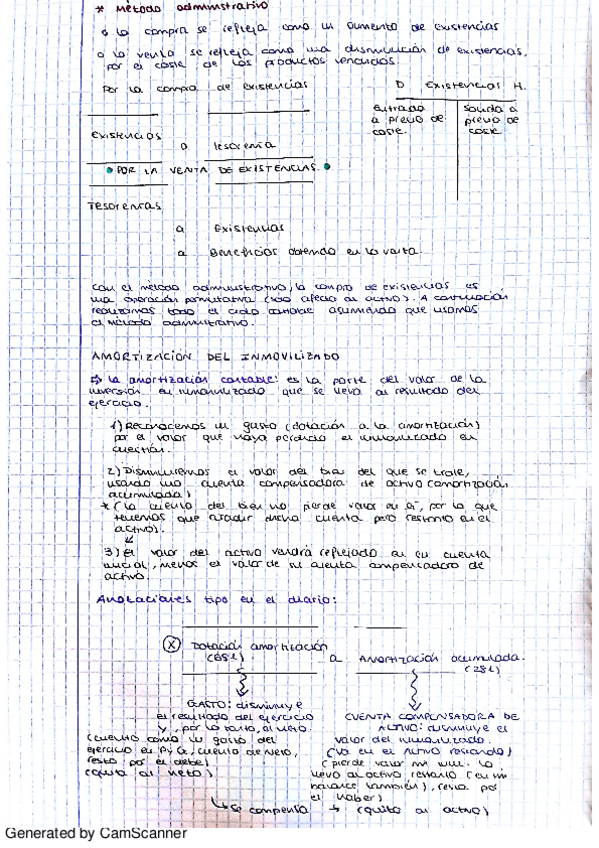 * Método administrativo
o la compra se refleja como un aumento de existencias
o la venta se refleja como una disminución de existencias,
por el coste de los productos vendidos.
Por la compra de existencias
D Existencias H.
entrada a precio de coste
salida a precio de coste
Existencias
a tesorería
• POR LA VENTA DE EXISTENCIAS. •
Tesorerías
a Existencias
a Beneficios obtenido en la venta.
Con el método administrativo, la compra de existencias es
una operación permutativa (solo afecta al activo). A continuación
realizamos todo el ciclo contable asumiendo que usamos
el método administrativo.
AMORTIZACIÓN DEL INMOVILIZADO
⇒ La amortización contable: es la parte del valor de la
inversión en inmovilizado que se lleva al resultado del
ejercicio.
1) Reconocemos un gasto (dotación a la amortización)
por el valor que vaya perdido el inmovilizado en
cuestión.
2) Disminuiremos el valor del bien del que se trate,
usando una cuenta compensadora de activo (amortización
acumulada)
* (La cuenta del bien no pierde valor en sí, por lo que
tenemos que añadir dicha cuenta pero restando en el
activo).
3) El valor del activo vendrá reflejado en su cuenta
inicial, menos el valor de su cuenta compensadora de
activo.
Anotaciones tipo en el diario:
X Dotación amortización
(681)
a Amortización acumulada.
(281)
GASTO: disminuye
el resultado del ejercicio
y, por lo tanto, al neto.
(cuenta como un gasto del
ejercicio en PyG, cuenta de neto,
resta por el debe)
(quita al neto)
CUENTA COMPENSADORA DE
ACTIVO: disminuye el
valor del inmovilizado.
(Va en el activo restando)
(pierde valor mi inmov. lo
llevo al activo restando (en mi
balance también), resta por
el haber)
↳ se compensa → (quita al activo)
Generated by CamScanner